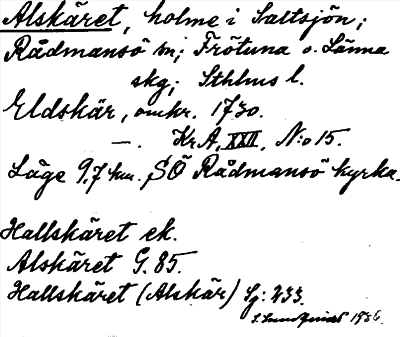 Alskäret, holme i Saltsjön;
Rådmansö sn; Frötuna o. Länna
skg; Sthlms l.
Eldskär, omkr. 1730.
—. Kr A, XXII, N:o 15.
Läge 9,7 km. SÖ Rådmansö kyrka.
Hallskäret ek.
Alskäret G. 85.
Hallskäret (Alskär) Sj: 233.
1936.